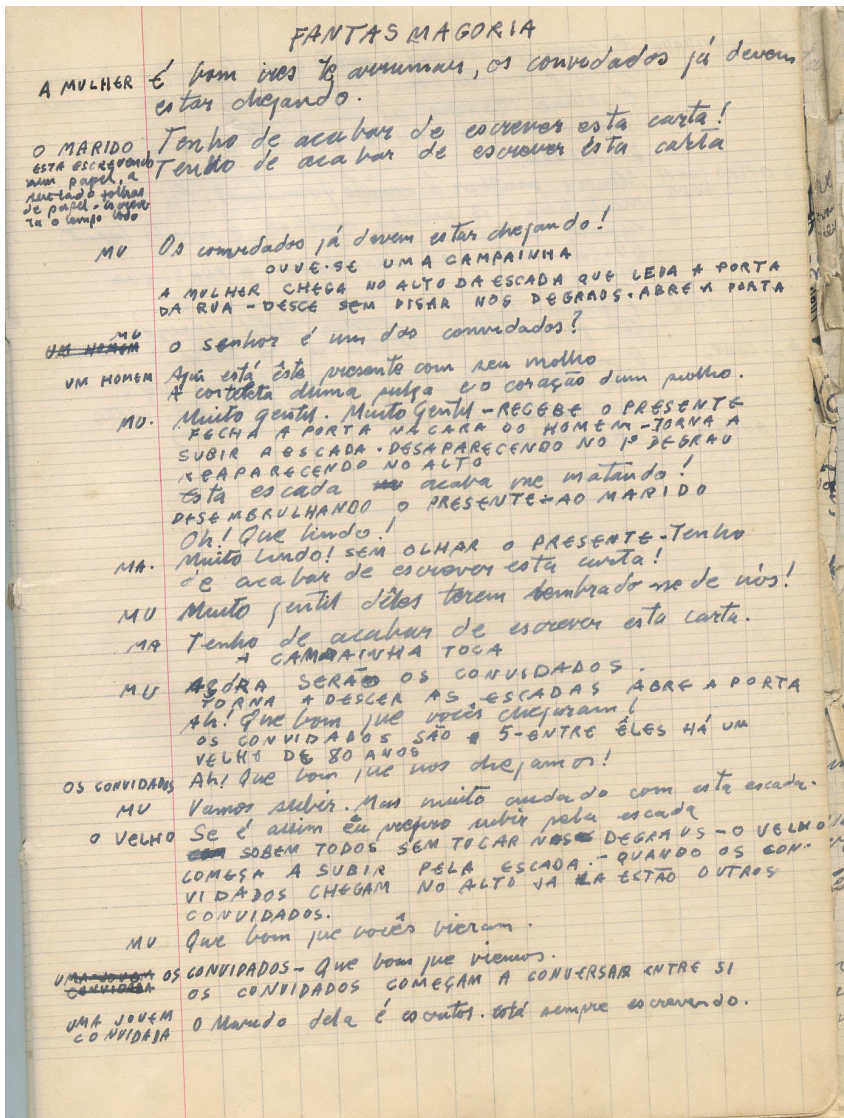 FANTASMAGORIA
A MULHER É bom ires te arrumar, os convidados já devem
estar chegando.
O MARIDO Tenho de acabar de escrever esta carta!
ESTÁ ESCREVENDO Tenho de acabar de escrever esta carta
num papel, a
seu lado folhas
de papel - escreve
o tempo todo
MU Os convidados já devem estar chegando!
OUVE-SE UMA CAMPAINHA
A MULHER CHEGA NO ALTO DA ESCADA QUE LEVA A PORTA
DA RUA - DESCE SEM PISAR NOS DEGRAUS. ABRE A PORTA
MU
UM HOMEM O senhor é um dos convidados?
UM HOMEM Aqui está êste presente com seu molho
A costeleta duma pulga e o coração dum piolho.
MU. Muito gentil. Muito Gentil - RECEBE O PRESENTE
FECHA A PORTA NA CARA DO HOMEM - TORNA A
SUBIR A ESCADA. DESAPARECENDO NO 1º DEGRAU
REAPARECENDO NO ALTO
Esta escada acaba me matando!
DESEMBRULHANDO O PRESENTE - AO MARIDO
Oh! Que lindo!
MA. Muito lindo! SEM OLHAR O PRESENTE - Tenho
de acabar de escrever esta carta!
MU Muito gentil dêles terem lembrado-se de nós!
MA Tenho de acabar de escrever esta carta.
A CAMPAINHA TOCA
MU AGORA SERÃO OS CONVIDADOS.
TORNA A DESCER AS ESCADAS ABRE A PORTA
Ah! Que bom que vocês chegaram!
OS CONVIDADOS SÃO 5 - ENTRE ÊLES HÁ UM
VELHO DE 80 ANOS
OS CONVIDADOS Ah! Que bom que nos chegamos!
MU Vamos subir. Mas muito cuidado com esta escada.
O VELHO Se é assim eu prefiro subir pela escada
SOBEM TODOS SEM TOCAR NOS DEGRAUS - O VELHO
COMEÇA A SUBIR PELA ESCADA. - QUANDO OS CON-
VIDADOS CHEGAM NO ALTO JA LA ESTÃO OUTROS
CONVIDADOS.
MU Que bom que vocês vieram.
UMA JOVEM OS CONVIDADOS - Que bom que viemos.
CONVIDADA OS CONVIDADOS COMEÇAM A CONVERSAR ENTRE SI
UMA JOVEM O Marido dela é escritor. Está sempre escrevendo.
CONVIDADA